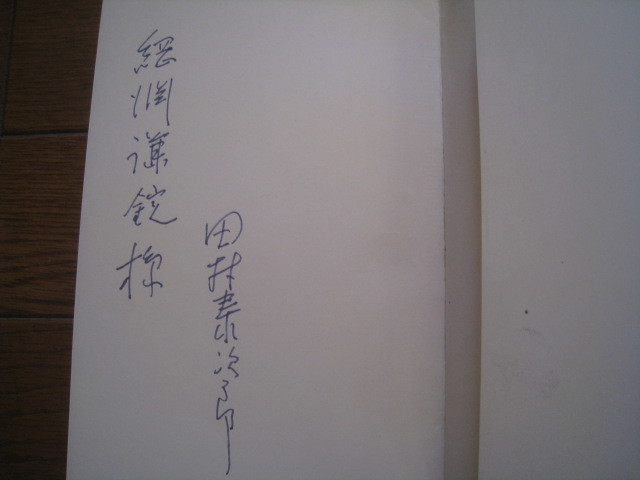 綱淵謙錠様
田村泰次郎